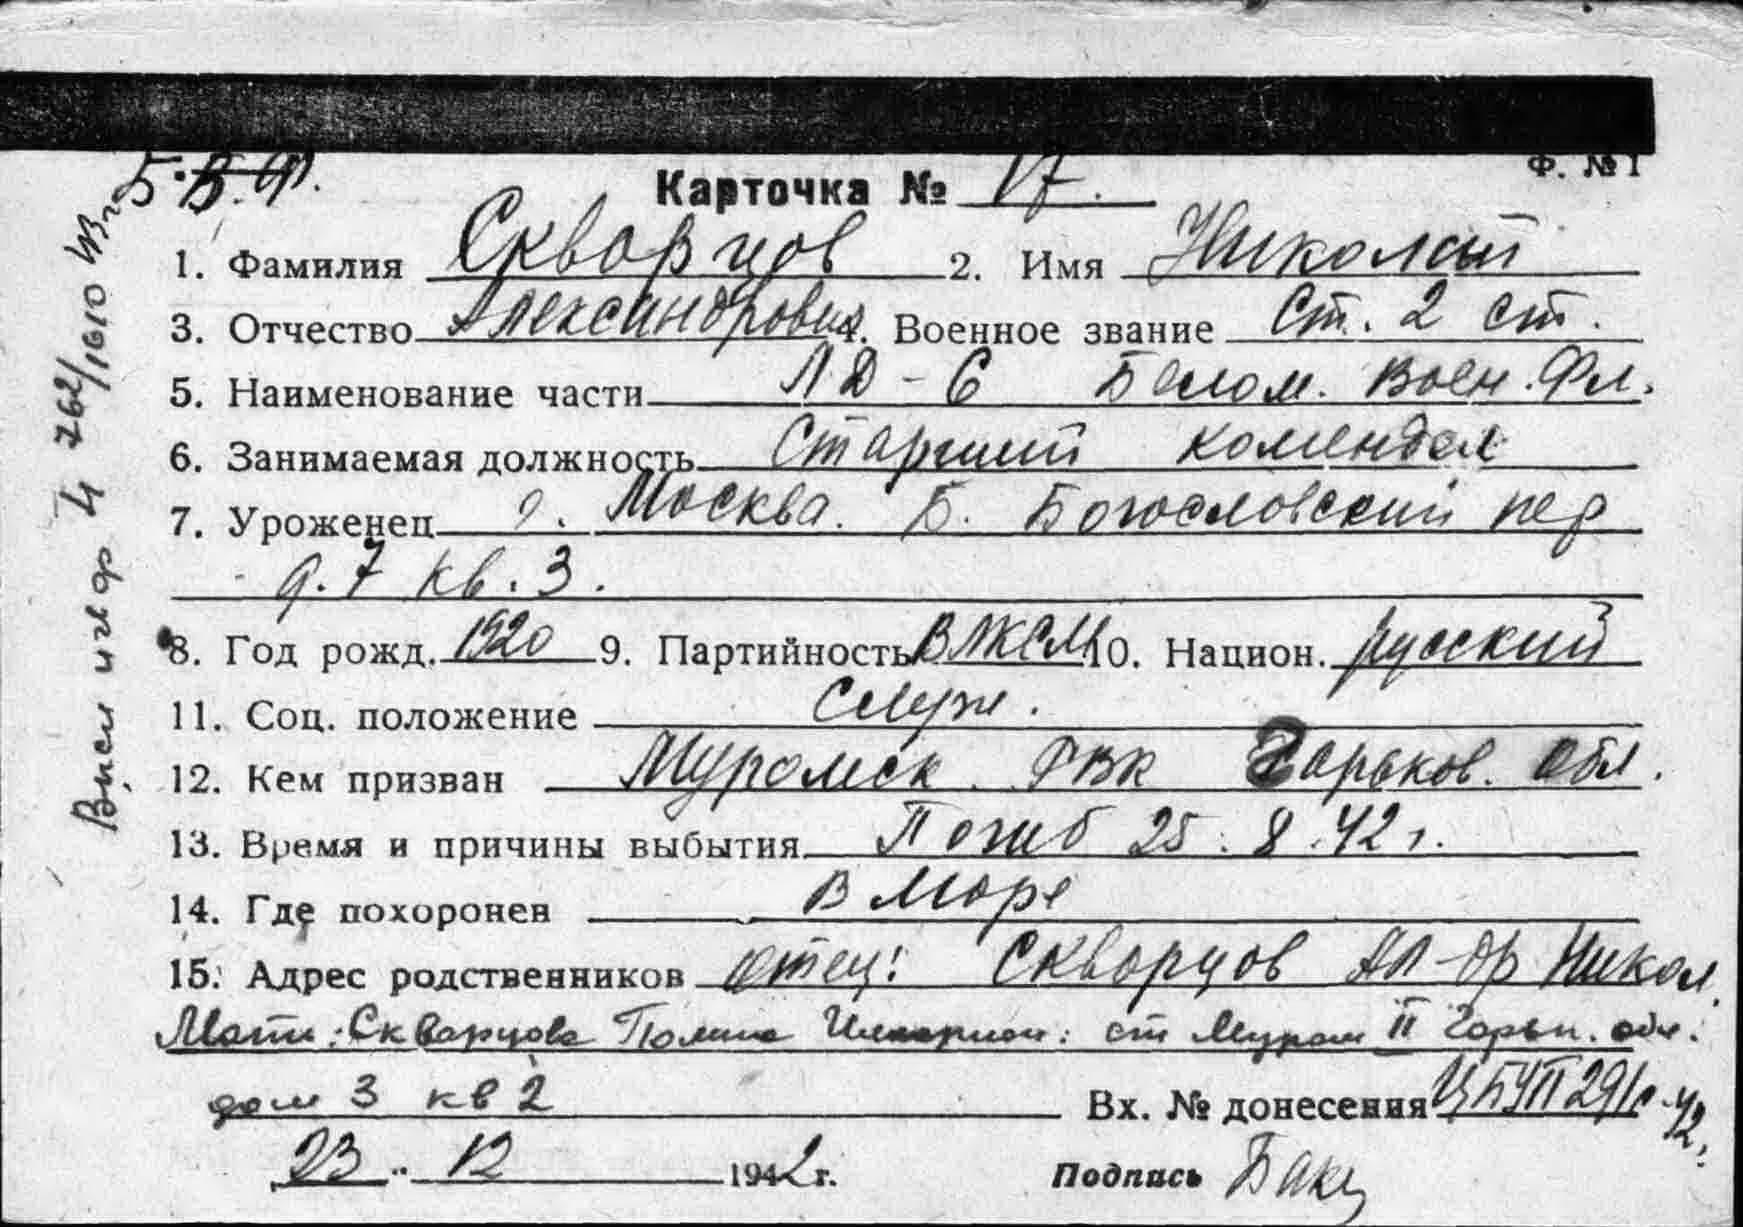 Б.В.Ф.
Ф. № 1
Карточка № 17.
1. Фамилия Скворцов 2. Имя Николай
3. Отчество Александрович 4. Военное звание Ст. 2 ст.
5. Наименование части ЛД-6 Белом. Воен. Фл.
6. Занимаемая должность Старший комендор
7. Уроженец г. Москва. Б. Богословский пер
д. 7 кв. 3.
8. Год рожд. 1920 9. Партийность ВЛКСМ 10. Национ. русский
11. Соц. положение Служ.
12. Кем призван Муромск. РВК Горьков. обл.
13. Время и причины выбытия Погиб 25.8.42 г.
14. Где похоронен в море
15. Адрес родственников отец: Скворцов Ал-др Никол.
Мать: Скворцова Полина ст Муром II Горьк. обл.
дом 3 кв 2 Вх. № донесения 42.
23 12 1942 г. Подпись